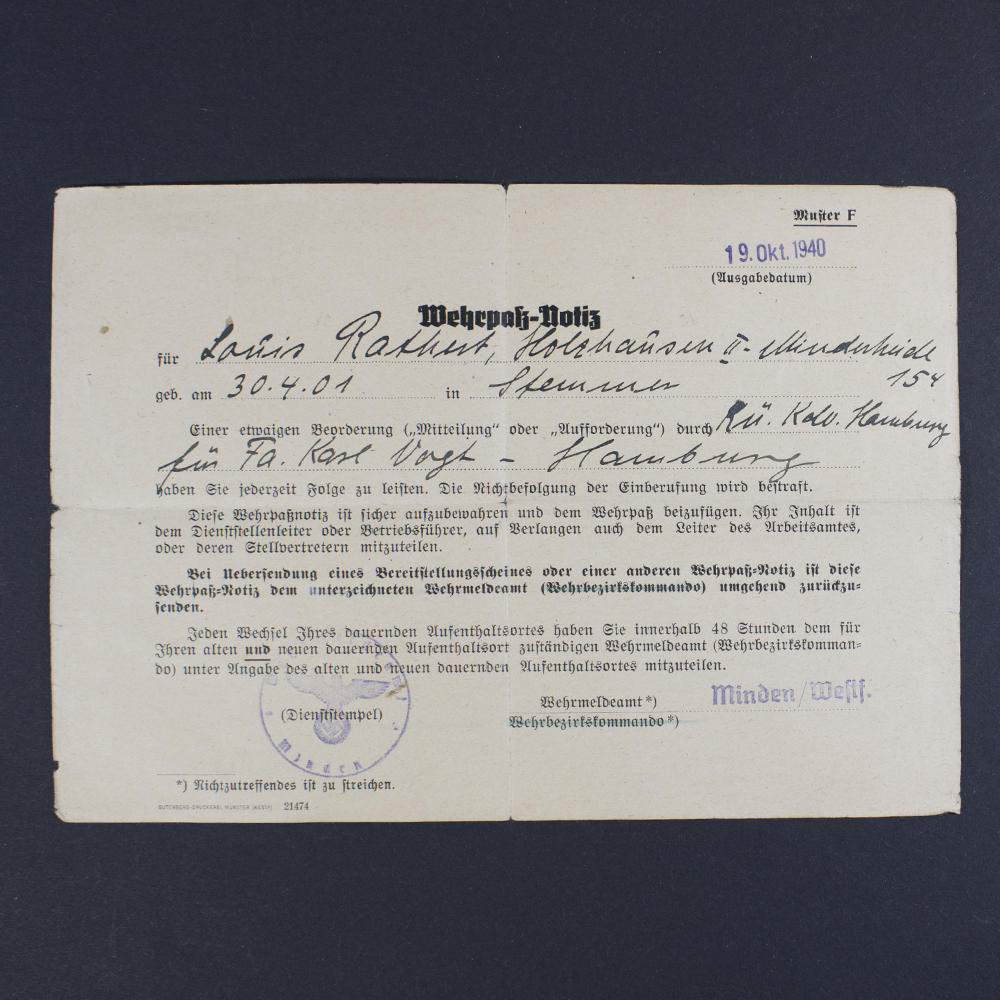 Muster F
19. Okt. 1940
(Ausgabedatum)
Wehrpaß-Notiz
für Louis Rathert, Holzhausen II - Minderheide 154
geb. am 30.4.01 in Stemmer
Einer etwaigen Beorderung („Mitteilung“ oder „Aufforderung“) durch Rü. Kdo. Hamburg
für Fa. Karl Vogt - Hamburg
haben Sie jederzeit Folge zu leisten. Die Nichtbefolgung der Einberufung wird bestraft.
Diese Wehrpaßnotiz ist sicher aufzubewahren und dem Wehrpaß beizufügen. Ihr Inhalt ist
dem Dienststellenleiter oder Betriebsführer, auf Verlangen auch dem Leiter des Arbeitsamtes,
oder deren Stellvertretern mitzuteilen.
Bei Uebersendung eines Bereitstellungsscheines oder einer anderen Wehrpaß-Notiz ist diese
Wehrpaß-Notiz dem unterzeichneten Wehrmeldeamt (Wehrbezirkskommando) umgehend zurückzu-
senden.
Jeden Wechsel Ihres dauernden Aufenthaltsortes haben Sie innerhalb 48 Stunden dem für
Ihren alten und neuen dauernden Aufenthaltsort zuständigen Wehrmeldeamt (Wehrbezirkskomman-
do) unter Angabe des alten und neuen dauernden Aufenthaltsortes mitzuteilen.
Wehrmeldeamt*) Minden/Westf.
Wehrbezirkskommando*)
(Dienststempel)
Minden
*) Nichtzutreffendes ist zu streichen.
GUTENBERG-DRUCKEREI, MÜNSTER (WESTF) 21474